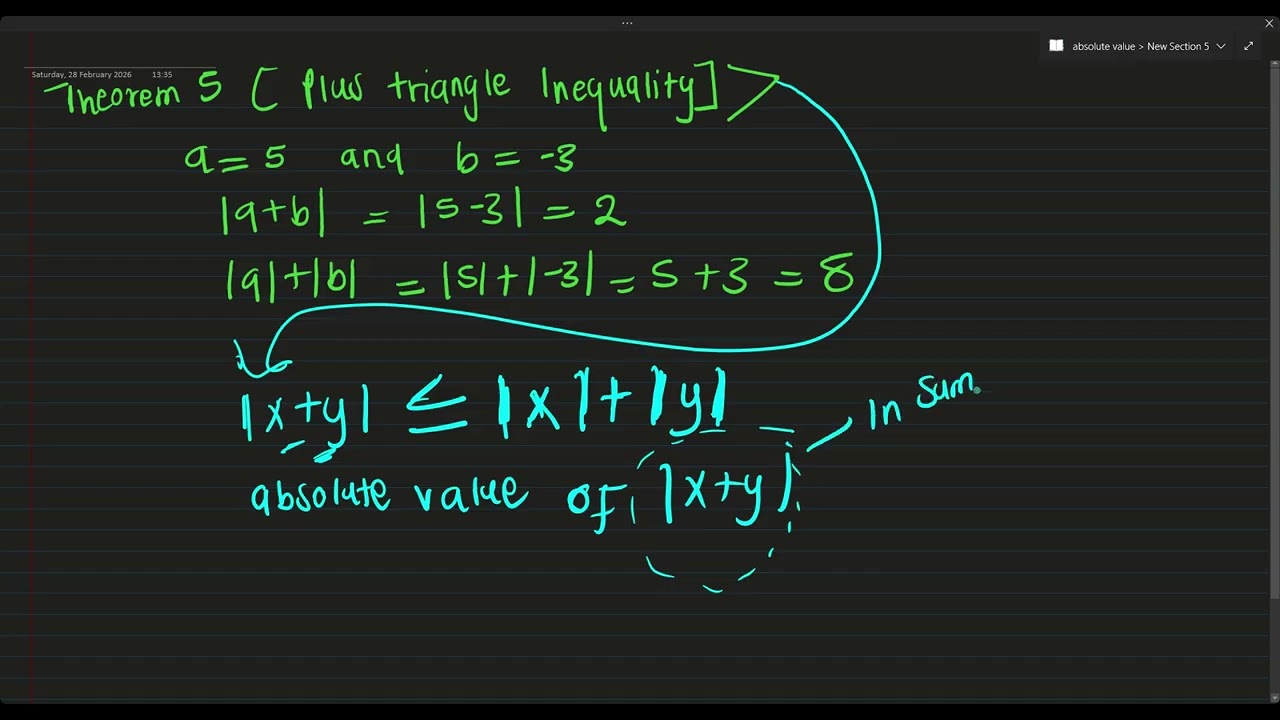 absolute value > New Section 5
Saturday, 28 February 2026 13:35
Theorem 5 [Plus triangle Inequality]
a = 5 and b = -3
|a+b| = |5-3| = 2
|a|+|b| = |5|+|-3| = 5+3 = 8
|x+y| ≤ |x|+|y|
In sum
absolute value of |x+y|